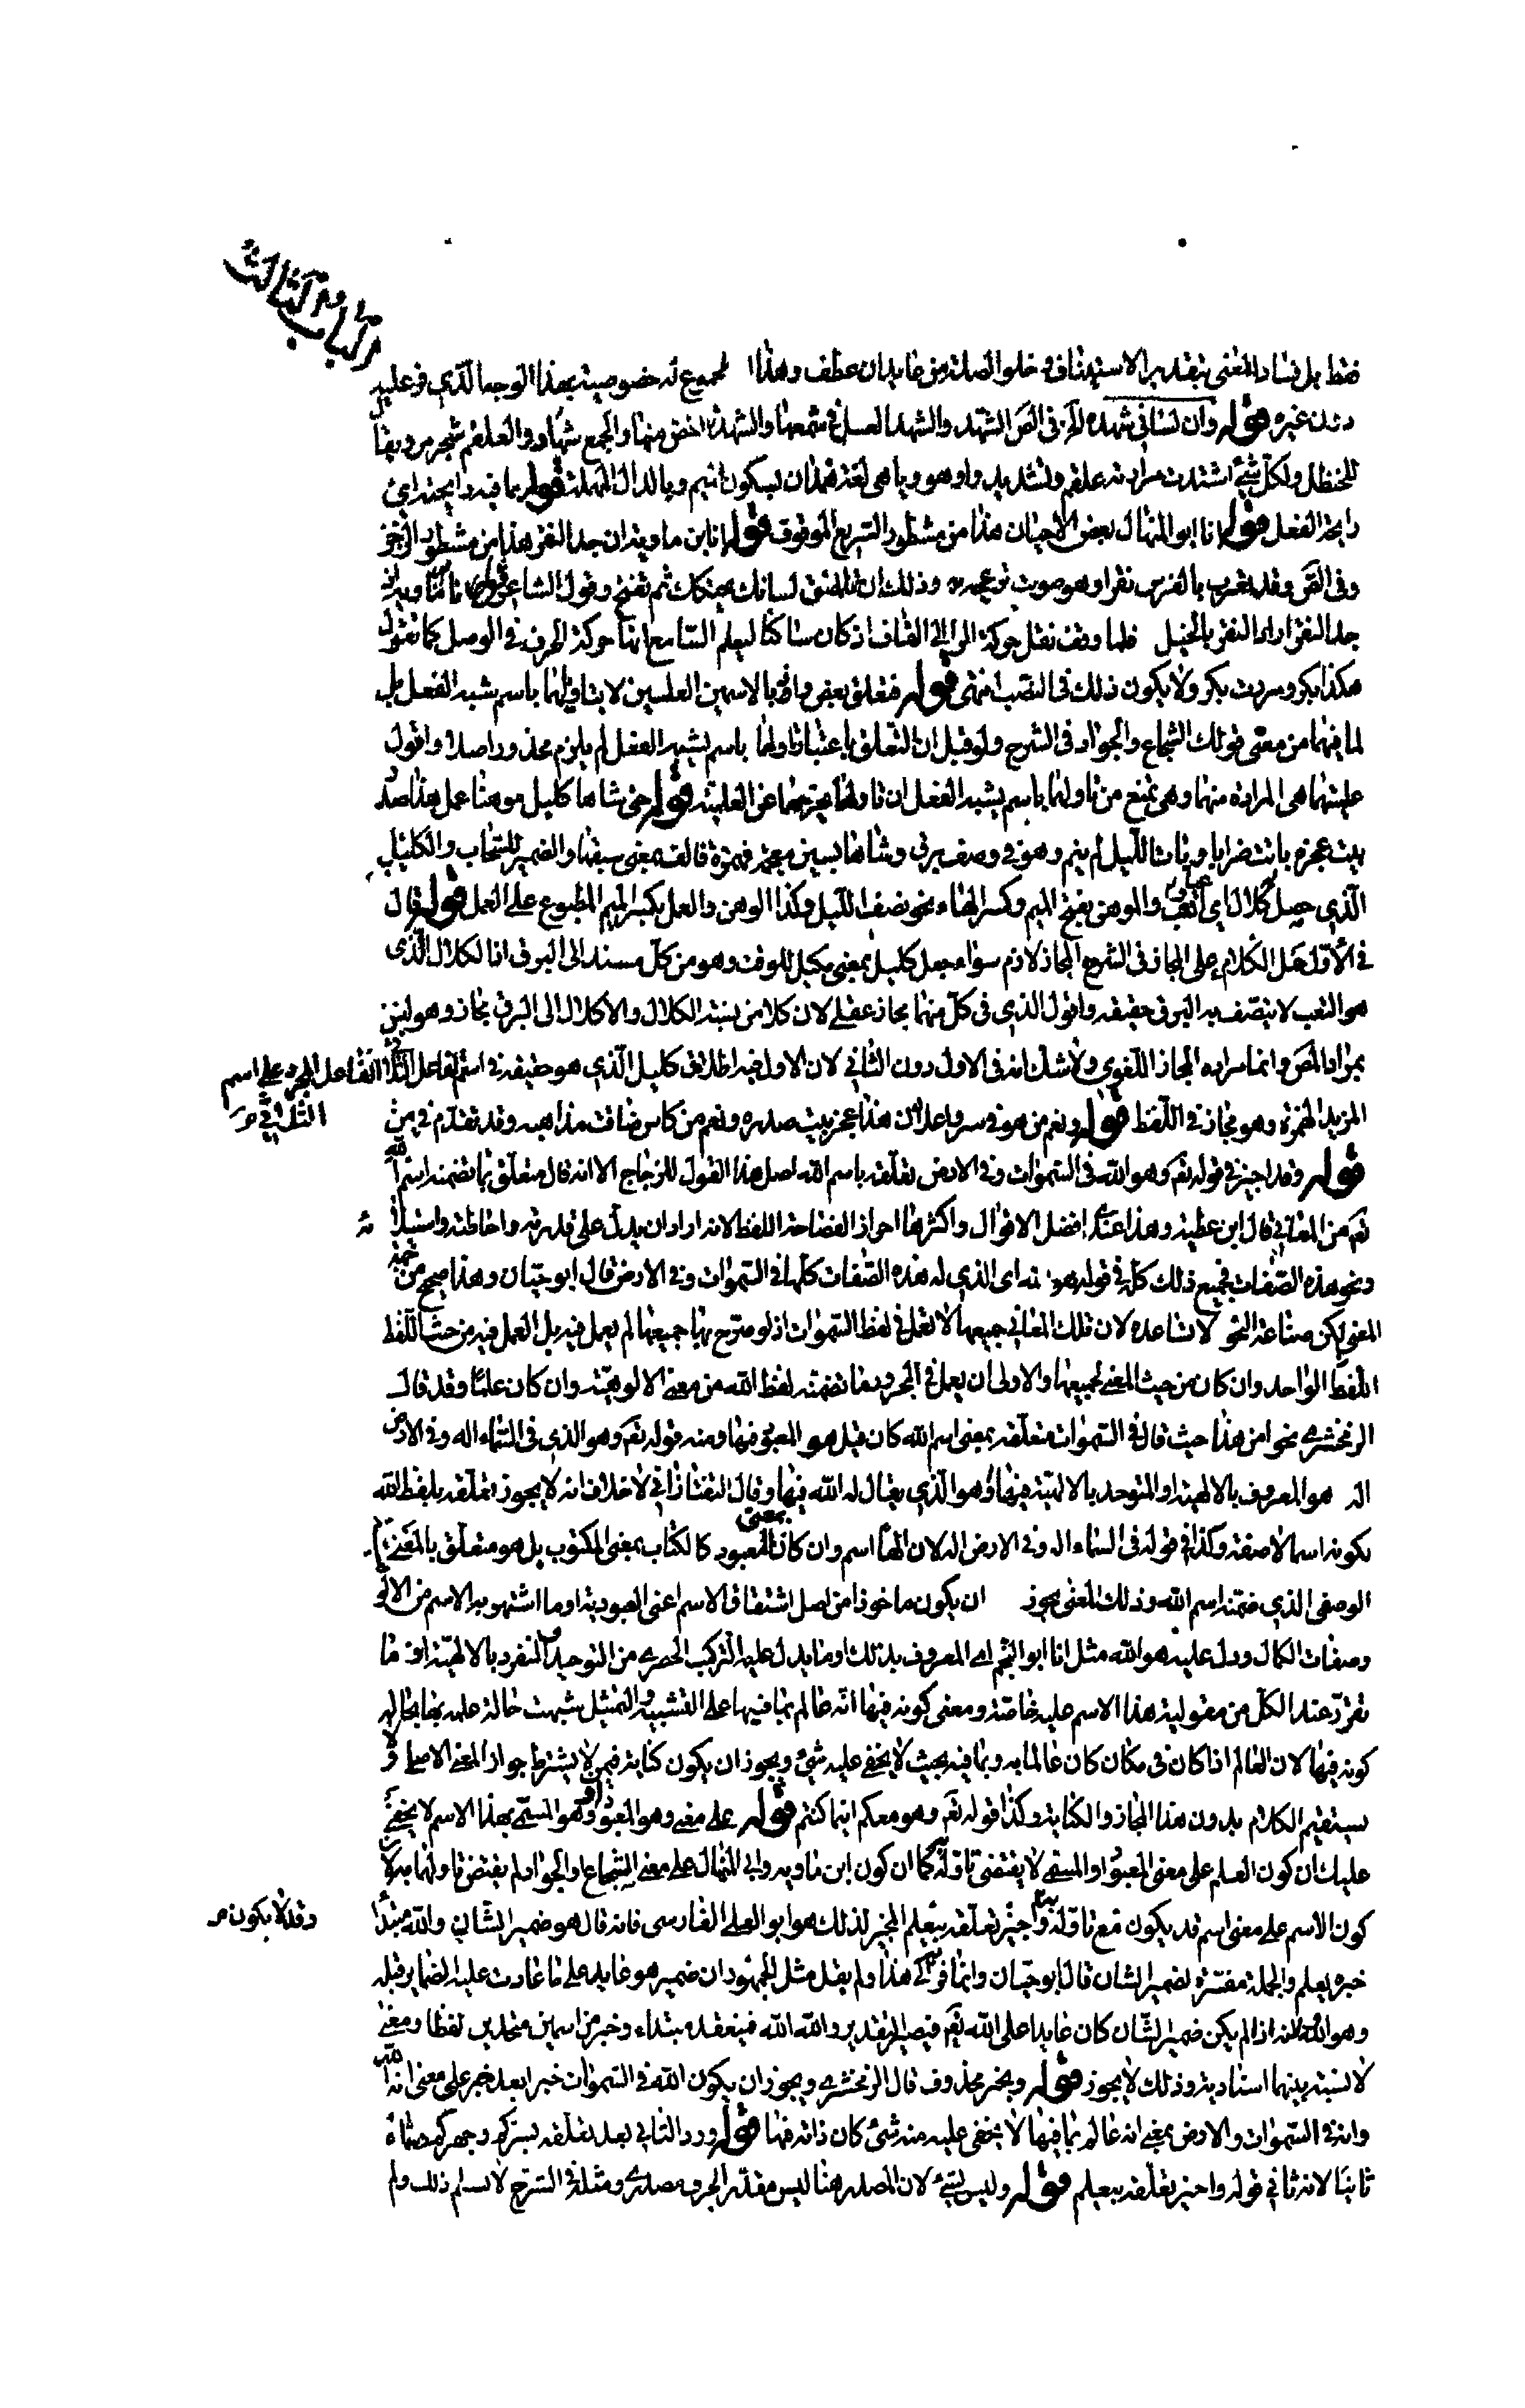 الباب الثالث
فقط بل فساد المعنى بتقدير الاستيناف و خلو الصلة من عايد ان عطف وهذا المجموع له خصوصية بهذا الوجه الذي فرعليه
دون غيره قوله وان لساني شهده الخ فى الص الشهد والشهد العسل فى شمعها والشهدة اخص منها والجمع شهاد والعلقم شجر مر ويقال
للحنظل ولكل شيئ اشتدت مرارته علقم وتشديد واو هو ويا هى لغة همدان بسكون الميم وبالدال المهملة قوله بما فيه رايحته اى
رايحة الفعل قوله انا ابو المنهال بعض الاحيان هذا من مشطور السريع الموقوف قوله انا ابن ماوية اذ جد النقر هذا من مشطور الرجز
وفى الص وقد نقرت بالفرس نقرا وهو صويت تزعجه به وذلك ان تلصق لسانك بحنكك ثم تفتح وقول الشاعر انا ابن ماوية اذ
جد النقر اراد النقر بالخيل فلما وقف نقل حركة الراء الى القاف اذ كان ساكنا ليعلم السامع انها حركة الحرف فى الوصل كما تقول
هكذا بكر ومررت ببكر ولا يكون ذلك فى النصب انتهى قوله فتعلق بعض واذ بالاسمين العلمين لا بتاويلهما باسم يشبه الفعل بل
لما فيهما من معنى قولك الشجاع والجواد فى الشرح ولو قيل ان التعلق باعتبار تاولهما باسم يشبه الفعل لم يلزم محذور اصلا واقول
علميتهما هى المرادة منهما وهى تمنع من تاولهما باسم يشبه الفعل ان تاولهما يخرجهما عن العلمية قوله حتى شاها كليل موهنا عمل هذا صدر
بيت عجزه باتت طرابا وبات الليل لم ينم وهو فى وصف برق وشاها بشين معجمة فهمزة فالف بمعنى سبقها والضمير للسحاب والكليل
الذي حصل كلال اى تعب والموهن بفتح الميم وكسر الهاء نحو نصف الليل وكذا الوهن والعمل بكسر الميم المطبوع على العمل قوله قال
فى الاول حمل الكلام على المجاز فى الشرح المجاز لازم سواء جعل كليل بمعنى مكل للوقت وهو من كل مسند الى البرق اذ الكلال الذى
هو التعب لا يتصف به البرق حقيقة واقول الذي فى كل منهما مجاز عقلى لان كلا من نسبة الكلال والاكلال الى البرق مجاز وهو ليس
بمراد المص وانما مراده المجاز اللغوى ولا شك انه فى الاول دون الثانى لان الاول فيه اطلاق كليل الذي هو حقيقة فى اسم الفاعل المجرد على اسم الفاعل
الثلاثى
المزيد الهمزة وهو مجاز فى اللفظ قوله ونعم من هو فى سر واعلان هذا عجز بيت صدره ونعم مزكا من ضاقت مذاهبه وقد تقدم فى من
قوله وقد اجيز فى قوله تعم وهو الله فى السموات وفى الارض تعلقه باسم الله اصل هذا القول للزجاج الا انه قال متعلق بما تضمنه اسم الله
تعم من المعانى قال ابن عطية وهذا عندى افضل الاقوال واكثرها احرازا لفصاحة اللفظ لانه اراد ان يدل على قدرته واحاطته واستيلائه
ونحو هذه الصفات فجمع ذلك كله فى قوله هو الله اى الذي له هذه الصفات كلها فى السموات وفى الارض قال ابو حيان وهذا صحيح من جهة
المعنى لكن صناعة النحو لا تساعده لان تلك المعانى جميعها لا تعمل فى لفظ السموات اذ لو صرح بها جميعها لم يعمل فيه بل العمل فيه من حيث اللفظ
اللفظ الواحد وان كان من حيث المعنى لجميعها والاولى ان يعمل فى المجرور ما تضمنه لفظ الله من معنى الالوهية وان كان علما وقد قال
الزمخشرى نحوا من هذا حيث قال فى السموات متعلقة بمعنى اسم الله كان قيل هو المعبود فيها ومنه قوله تعم وهو الذي فى السماء اله وفى الارض
اله هو المعروف بالالهية او المتوحد بالالهية فيها او هو الذي يقال له الله فيها وقال التفتازانى لا خلاف انه لا يجوز تعلقه بلفظ الله
بكونه اسما لا صفة وكذا فى قوله فى السماء اله وفى الارض اله لان الها اسم وان كان بمعنى المعبود كالكتاب بمعنى المكتوب بل هو متعلق بالمعنى
الوصفى الذي ضمنه اسم الله وذلك المعنى يجوز ان يكون ماخوذا من اصل اشتقاق الاسم اعنى العبودية او ما اشتهر به الاسم من الالو
وصفات الكمال ودل عليه هو الله مثل انا ابو النجم اى المعروف بذلك او ما يدل عليه التركيب الحصرى من التوحيد والتفرد بالالهية او ما
تقرر عند الكل من مقولية هذا الاسم عليه خاصة ومعنى كونه فيها انه عالم بما فيها على التشبيه والتمثيل شبهت حالة علمه بها بحالة
كونه فيها لان العالم اذا كان فى مكان كان عالما به وبما فيه بحيث لا يخفى عليه شيئ ويجوز ان يكون كناية فيمن لا يشترط جواز المعنى الاصلى ولا
يستقيم الكلام بدون هذا المجاز والكناية وكذا قوله تعم وهو معكم اينما كنتم قوله على معنى وهو المعبود او وهو المسمى بهذا الاسم لا يخفى
عليك ان كون العلم على معنى المعبود او المسمى لا يقتضى تاوله كما ان كون ابن ماوية وابى المنهال على معنى الشجاع والجواد لم يقتض تاولهما به لان
كون الاسم على معنى اسم قد يكون مع تاوله به وقد لا يكون واجيز تعلقه بيعلم المجيز لذلك هو ابو العلى الفارسى فانه قال هو ضمير الشان والله مبتدا
خبره يعلم والجملة مفسرة لضمير الشان قال ابو حيان وانما فر الى هذا ولم يقل مثل الجمهور ان ضمير هو عايد على ما عادت عليه الضماير قبله
وهو الله لانه اذا لم يكن ضمير الشان كان عايدا على الله تعم فيصير التقدير والله الله فينعقد مبتداء وخبر من اسمين متحدين لفظا ومعنى
لا نسبة بينهما اسنادية وذلك لا يجوز قوله وبخبر محذوف قال الزمخشرى ويجوز ان يكون الله فى السموات خبرا بعد خبر على معنى انه الله
وانه فى السموات والارض بمعنى انه عالم بما فيها لا يخفى عليه منه شئ كان ذاته فيها قوله ورد الثانى بعد تعلقه بسركم وجهركم سماه
ثانيا لانه ثانى قوله واجيز تعلقه بيعلم قوله وليس بشئ لان المصدر هنا ليس مقدر بحرف مصدرى ومثله فى الشرح لا نسلم ذلك ولم